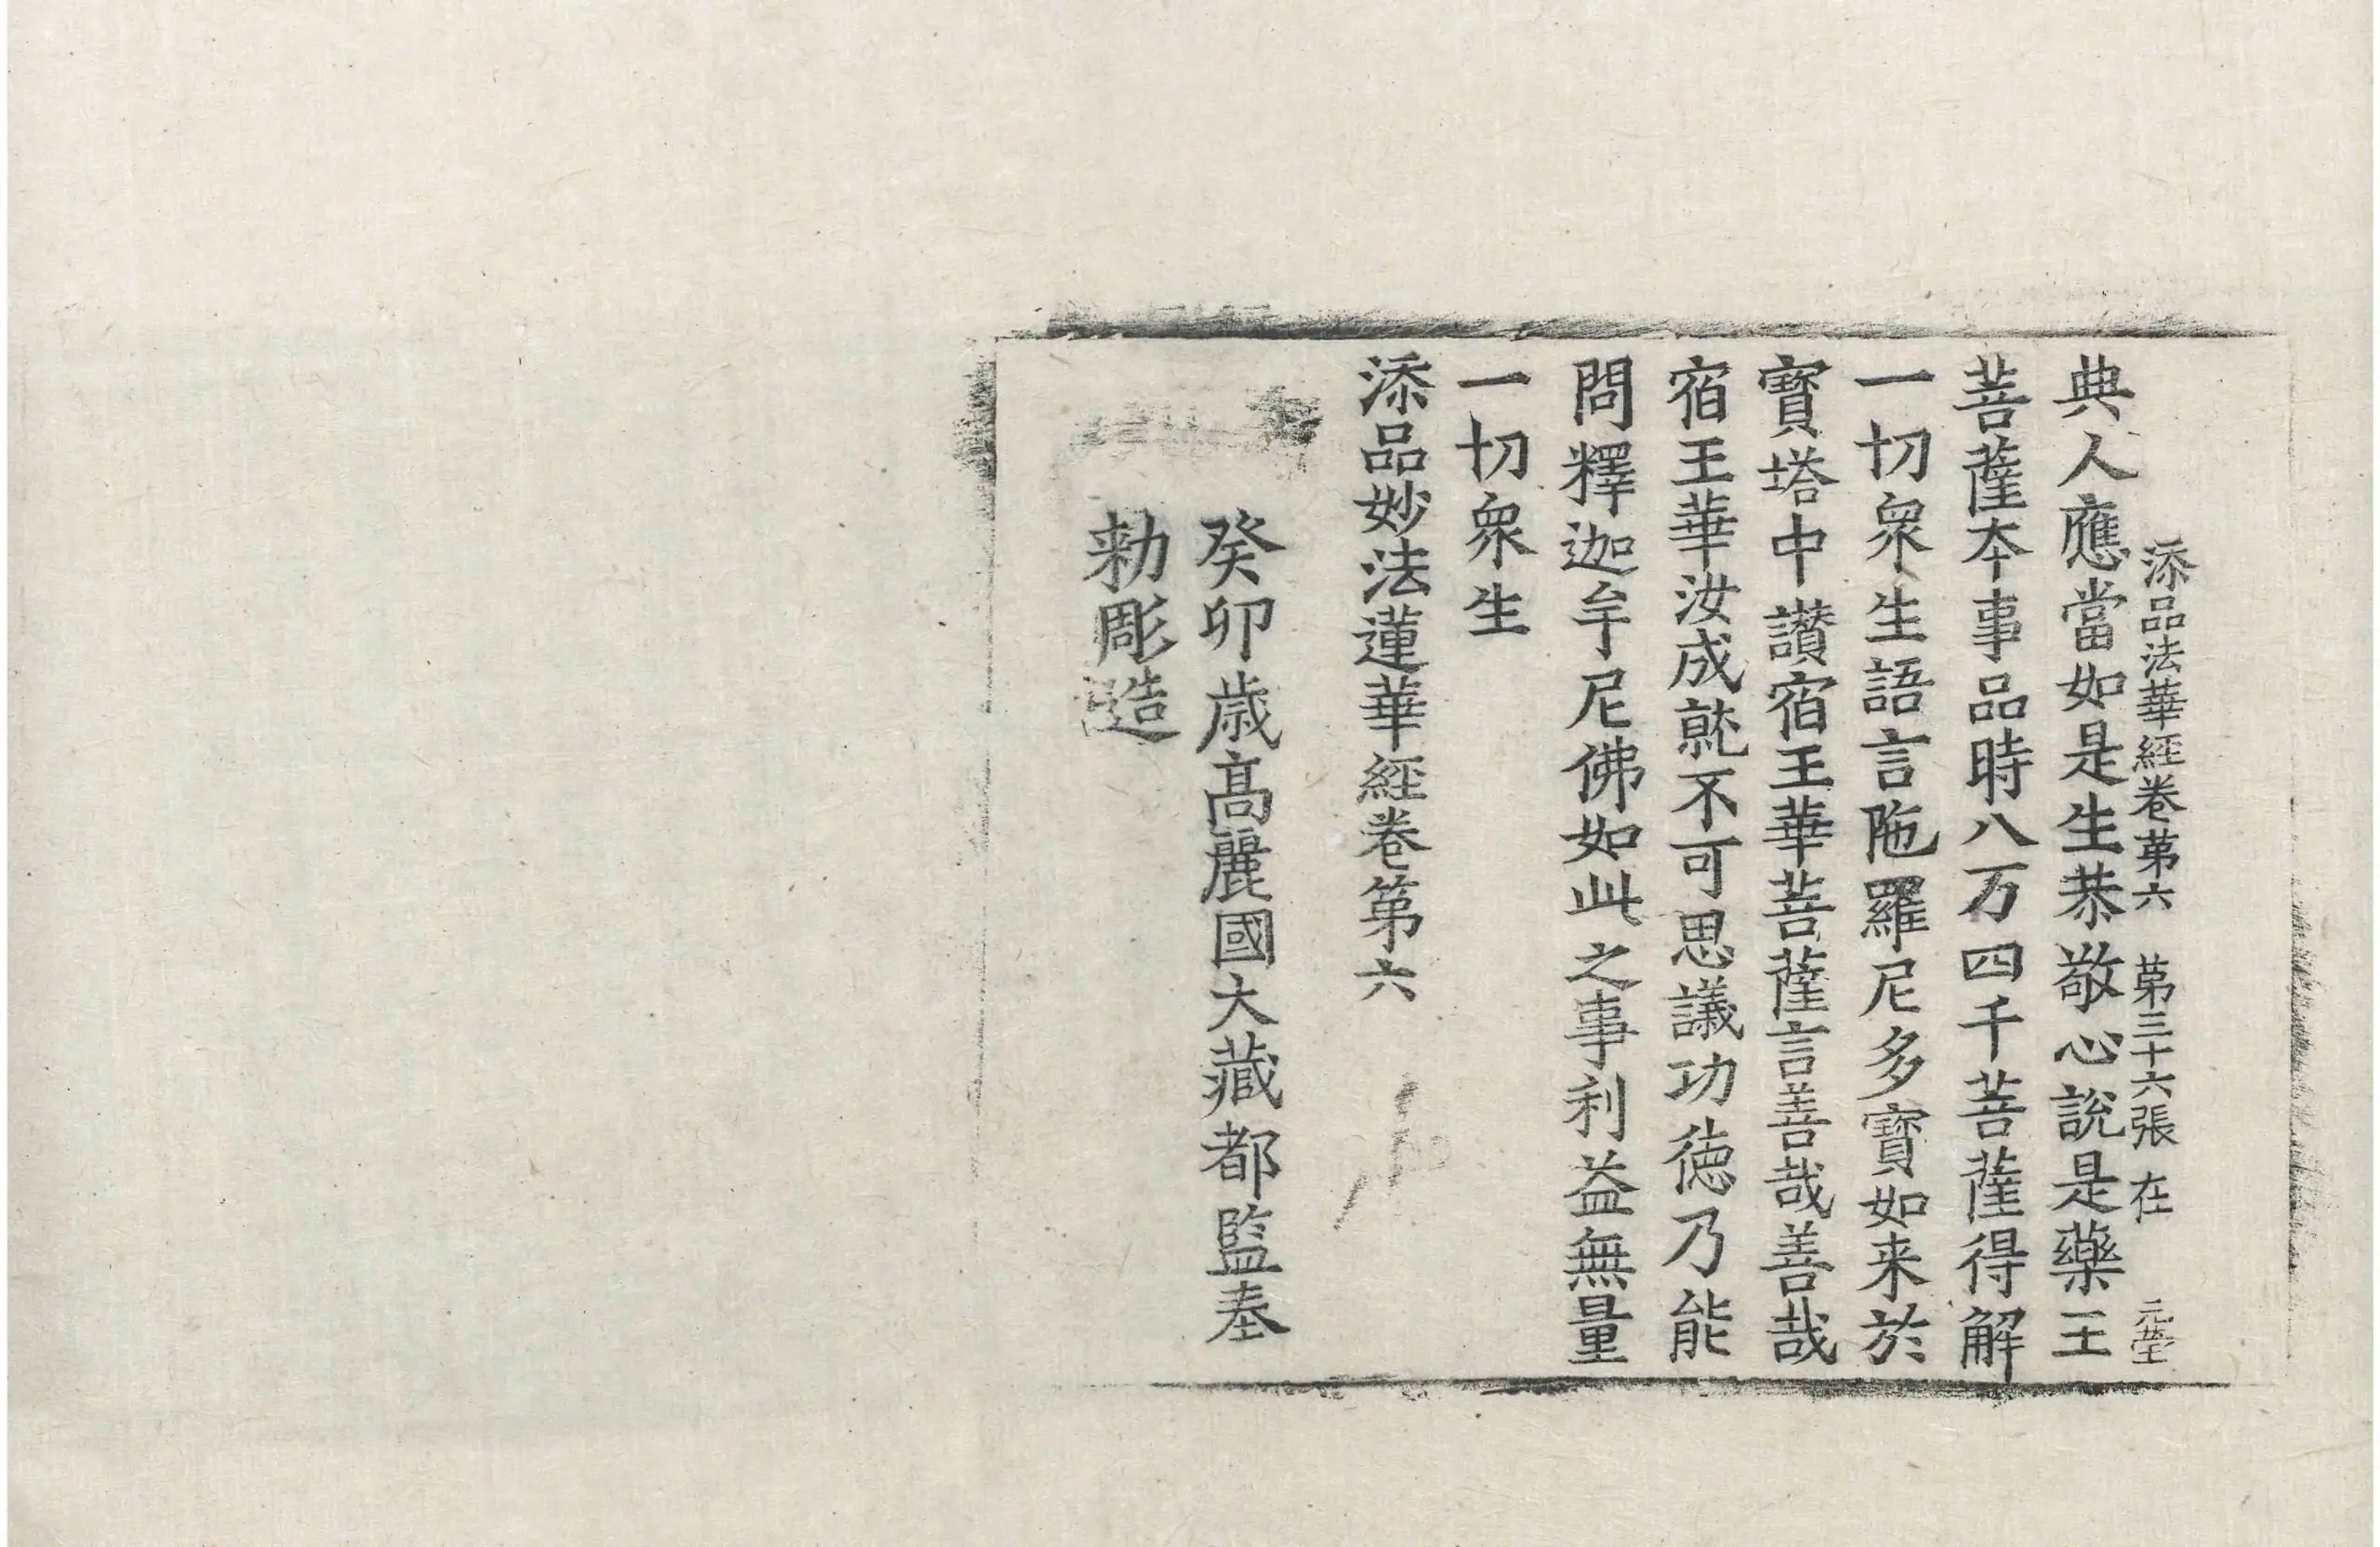 添品法華經卷第六 第三十六張 在
典人應當如是生恭敬心說是藥王
菩薩本事品時八万四千菩薩得解
一切衆生語言陁羅尼多寶如来於
寶塔中讃宿王華菩薩言善哉善哉
宿王華汝成就不可思議功徳乃能
問釋迦牟尼佛如此之事利益無量
一切衆生
添品妙法蓮華經卷第六
癸卯歳髙麗國大藏都監奉
勑彫造